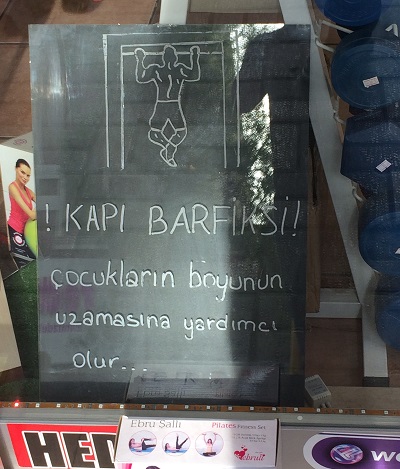 ! KAPI BARFİKSİ!
çocukların boyunun
uzamasına yardımcı
olur...
Ebru Şallı Pilates Fitness Set
ebruli
HED
we